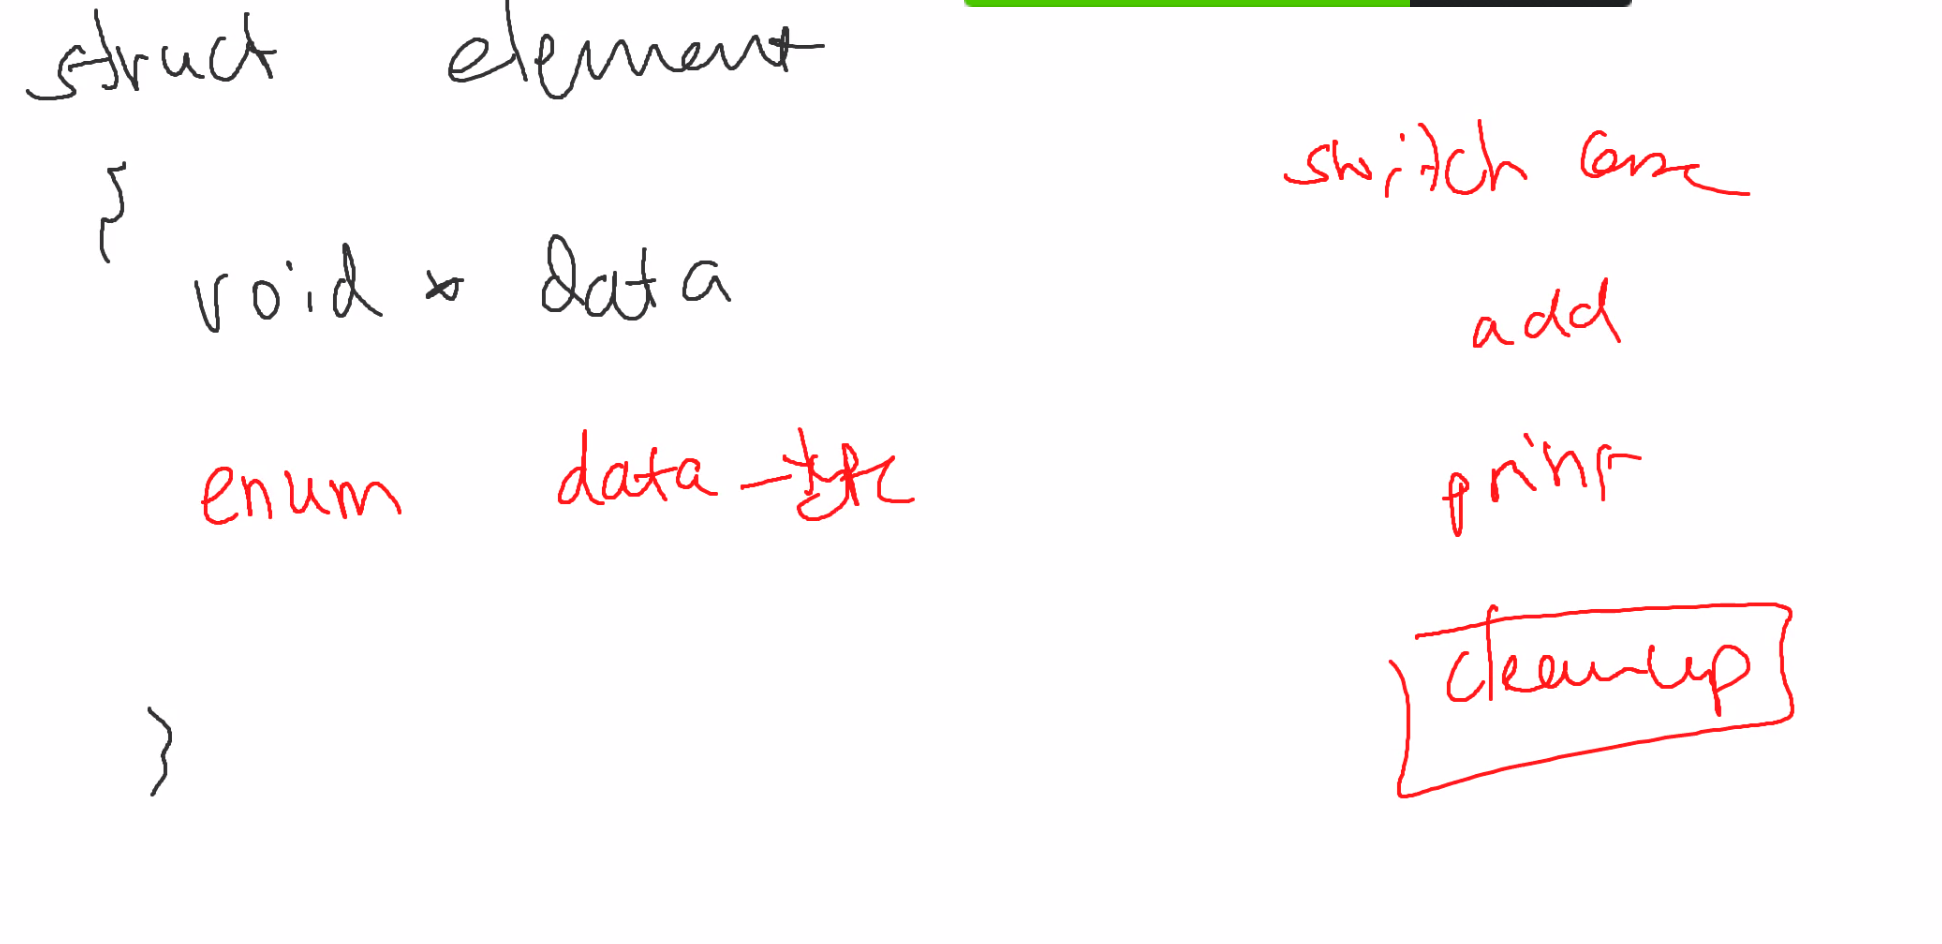 struct element
{
void * data
enum data-type
}
switch case
add
print
cleanup